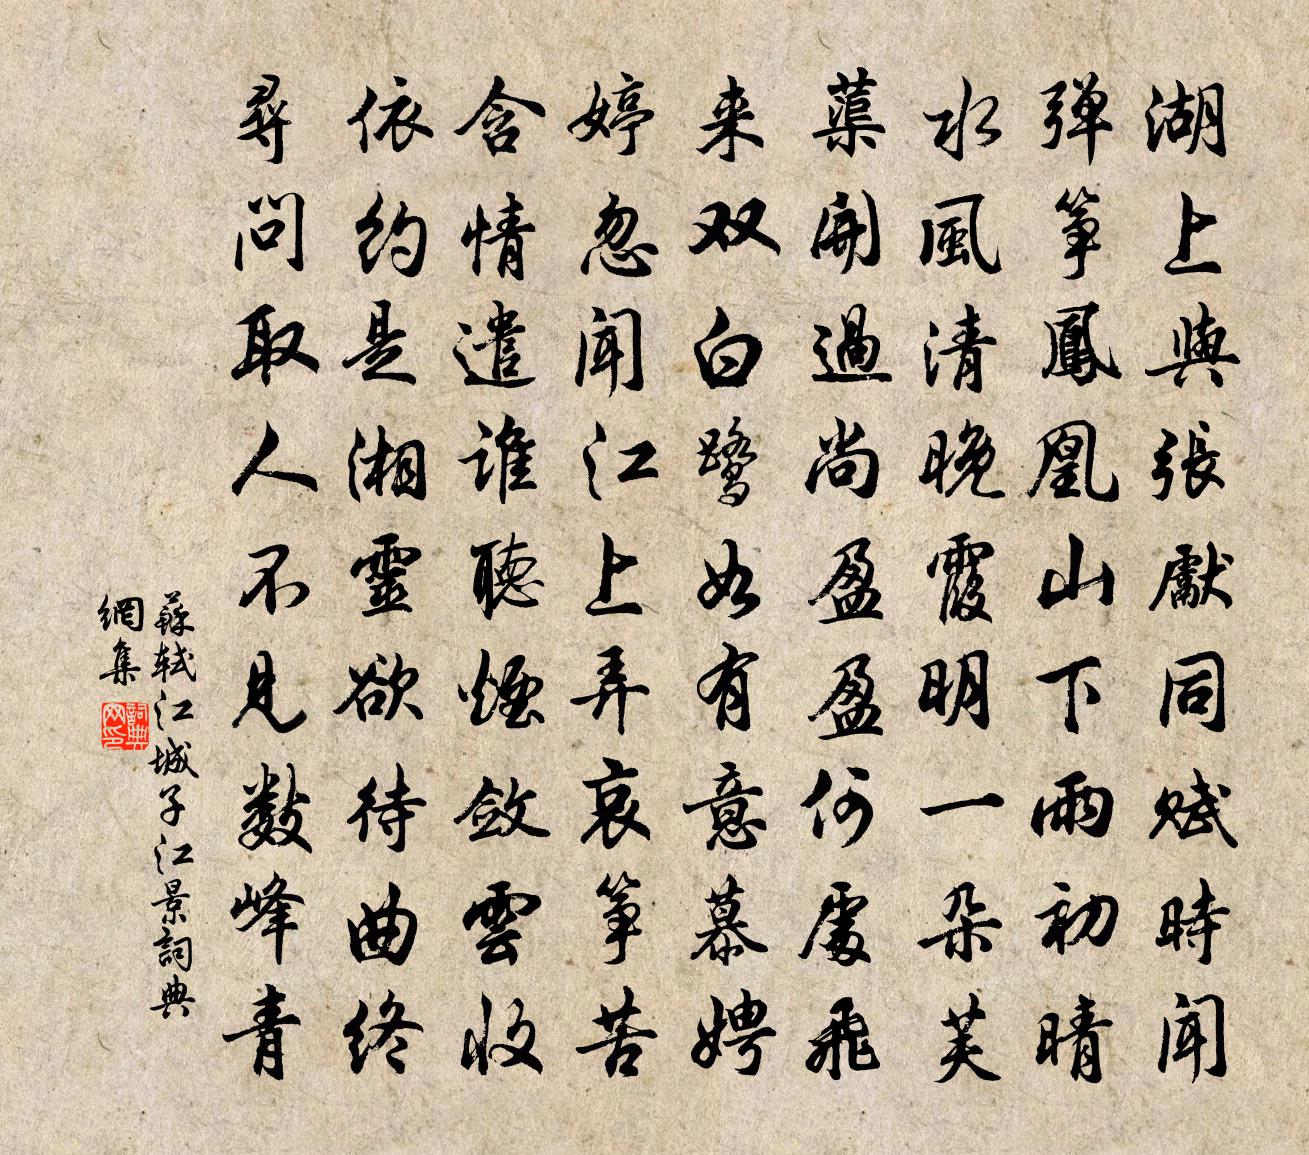 湖上與張獻同賦時聞
彈箏鳳凰山下雨初晴
水風清晚霞明一朵芙
蕖開過尚盈盈何處飛
来双白鷺如有意慕娉
婷忽聞江上弄哀箏苦
含情遣誰聽煙斂雲收
依約是湘靈欲待曲終
尋問取人不見數峰青
蘇軾江城子江景詞典
網集
詞典网印